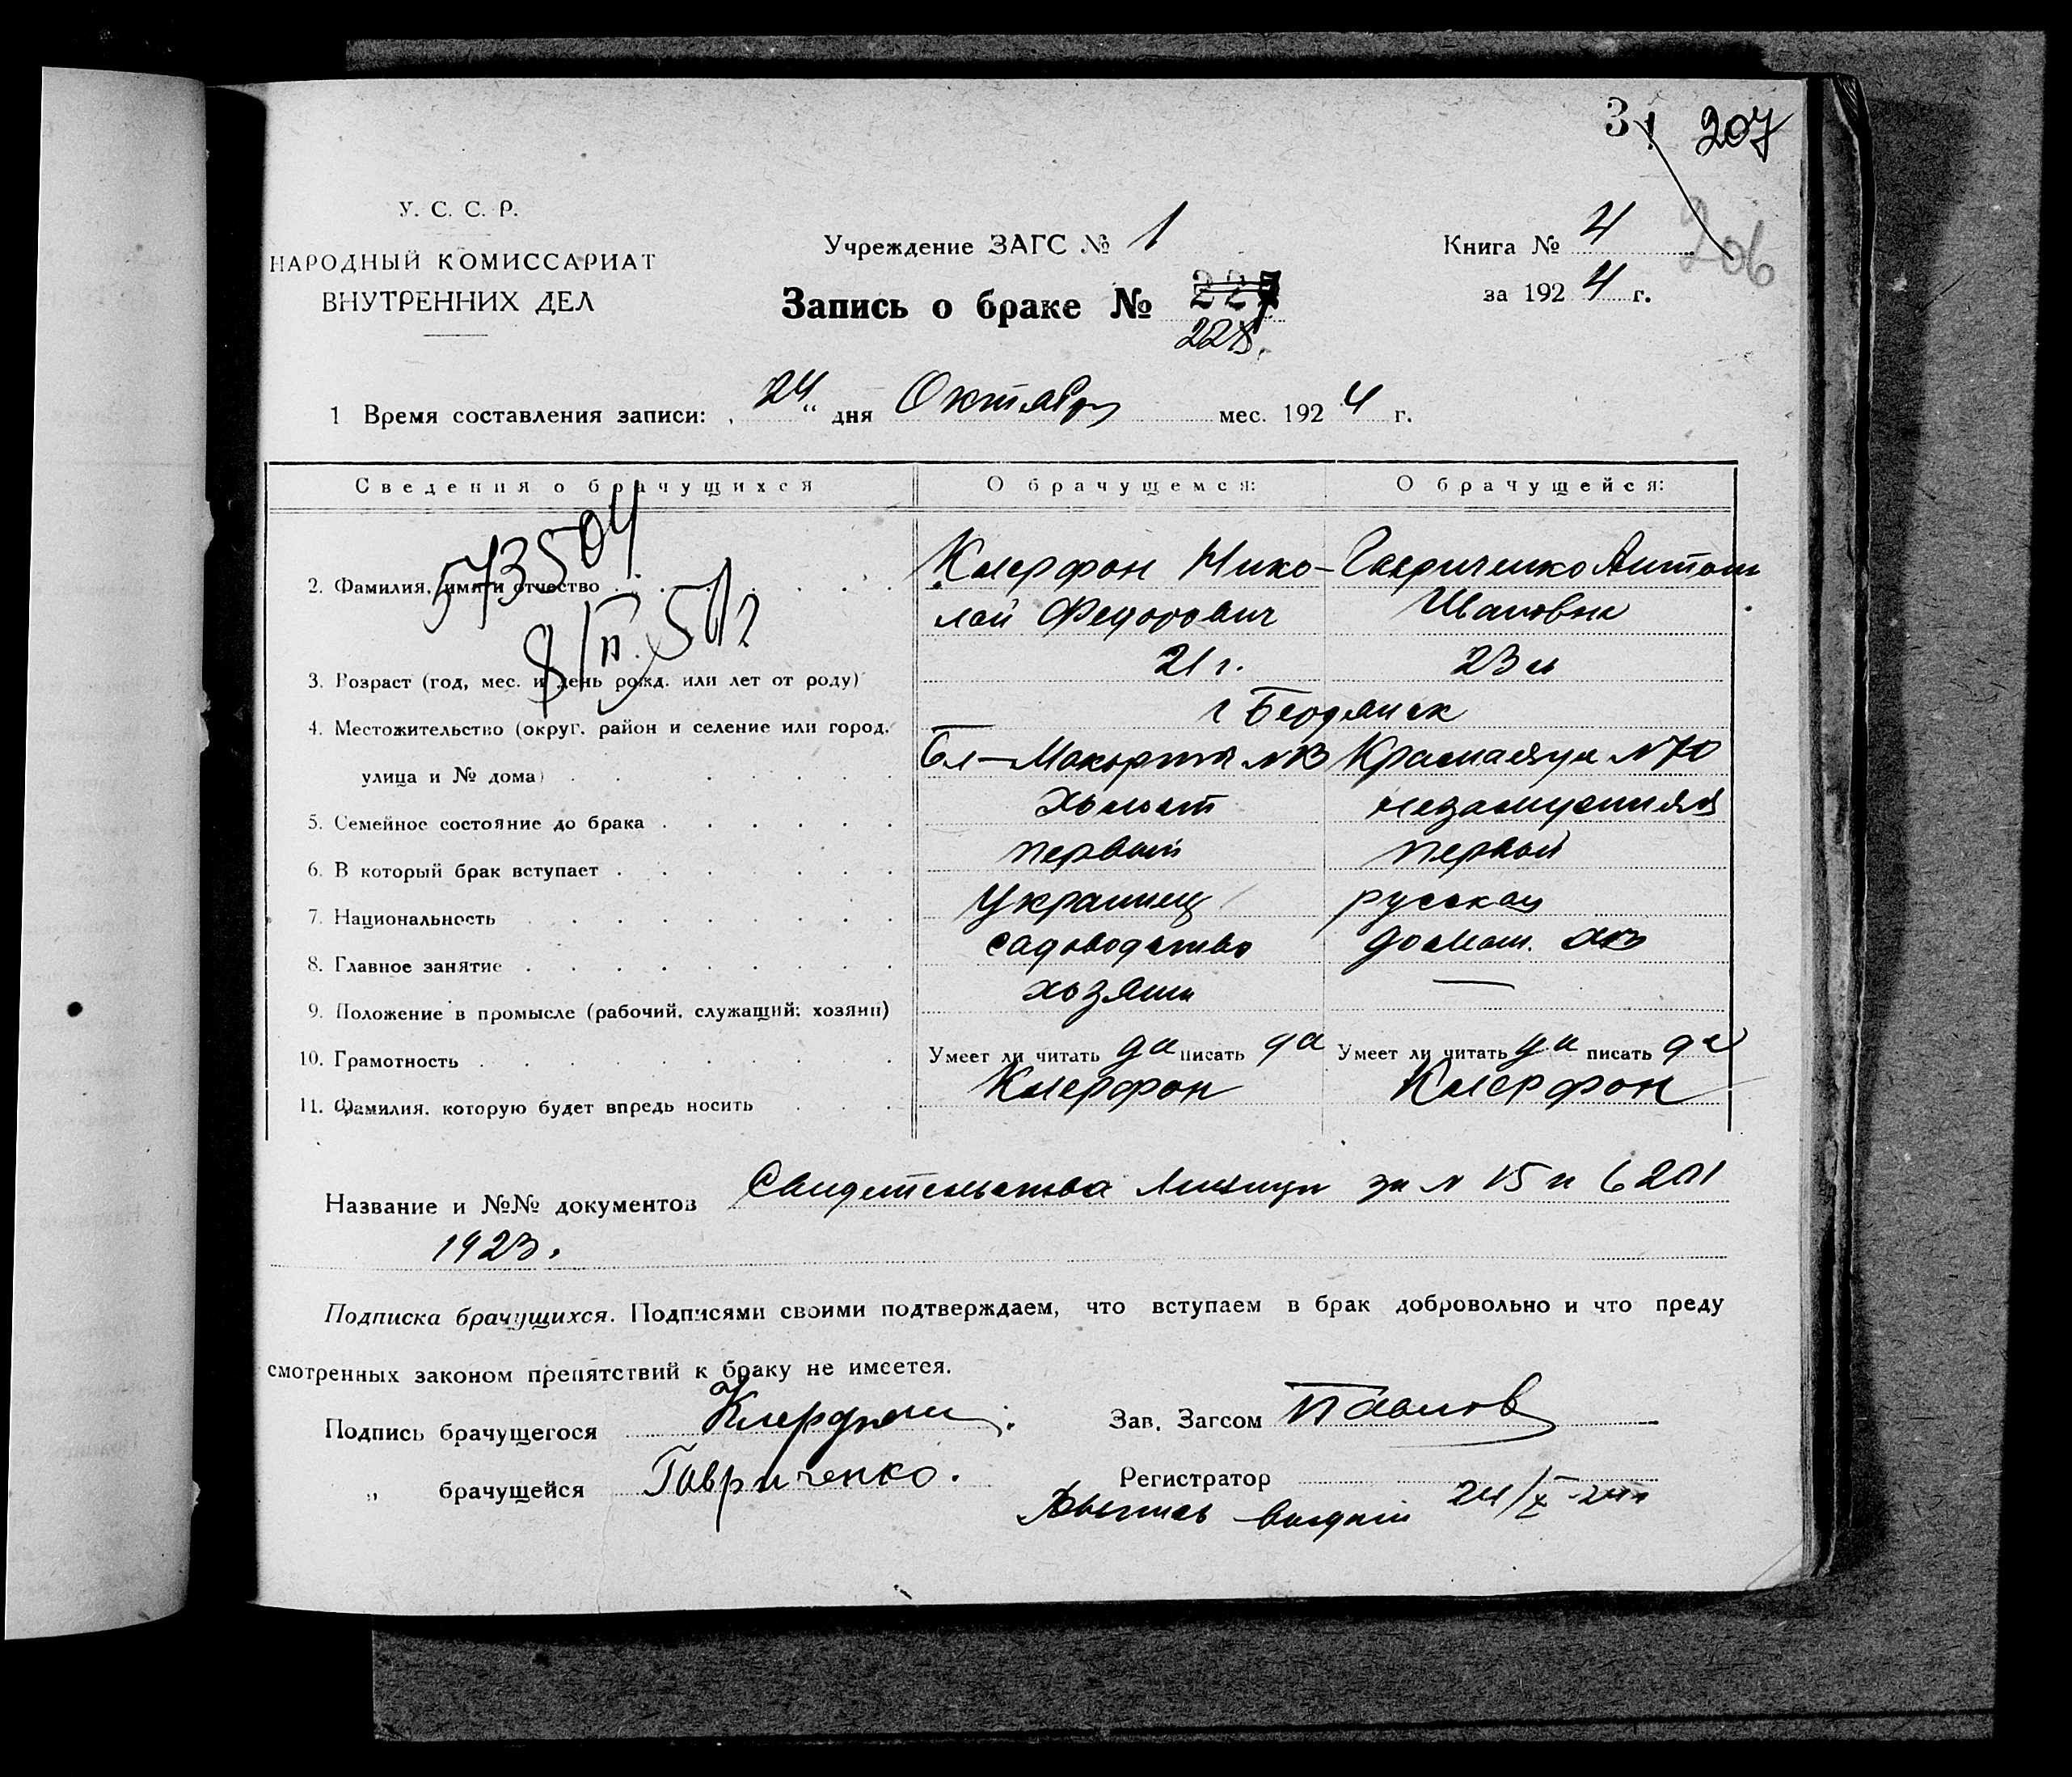 31 207
206
У. С. С. Р.
НАРОДНЫЙ КОМИССАРИАТ
ВНУТРЕННИХ ДЕЛ
Учреждение ЗАГС № 1
Книга № 4
за 1924 г.
Запись о браке № 227
228.
1 Время составления записи: „24“ дня Октября мес. 1924 г.
Сведения о брачущихся О брачущемся: О брачущейся:
573504
2. Фамилия, имя и отчество Клерфон Нико- Гавриченко
лай Федорович Ивановна
3. Возраст (год, мес. и день рожд. или лет от роду) 21 г. 23 л
4. Местожительство (округ, район и селение или город, г Бердянск
улица и № дома) №70
5. Семейное состояние до брака Холост незамужняя
6. В который брак вступает первый первый
7. Национальность Украинец русская
8. Главное занятие садоводство домаш.
9. Положение в промысле (рабочий, служащий, хозяин) хозяин —
10. Грамотность Умеет ли читать да писать да Умеет ли читать да писать да
11. Фамилия, которую будет впредь носить Клерфон Клерфон
Название и №№ документов Свидетельства за № 15 и 6201
1923.
Подписка брачущихся. Подписями своими подтверждаем, что вступаем в брак добровольно и что преду
смотренных законом препятствий к браку не имеется.
Подпись брачущегося Клерфон. Зав. Загсом Павлов
„ брачущейся Гавриченко. Регистратор
24/X